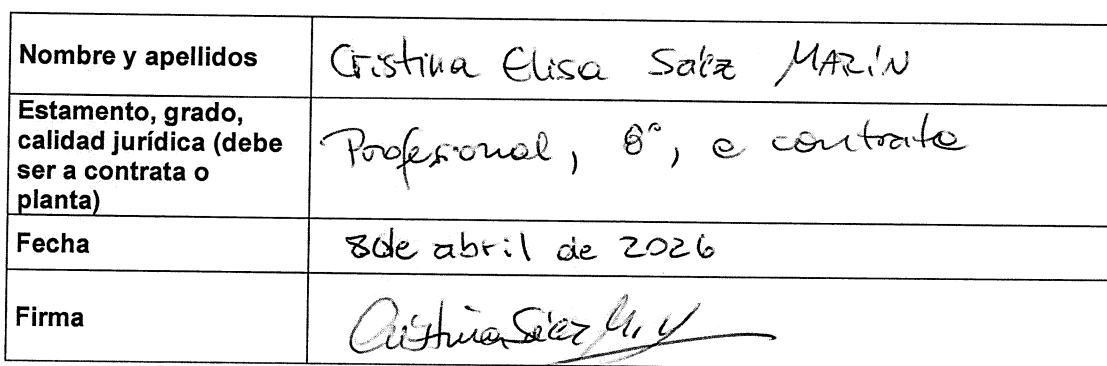 Nombre y apellidos
Cristina Elisa Saéz MARíN
Estamento, grado,
calidad jurídica (debe
ser a contrata o
planta)
Profesional, 8°, a contrata
Fecha
8 de abril de 2026
Firma
Cristina Sáez M.